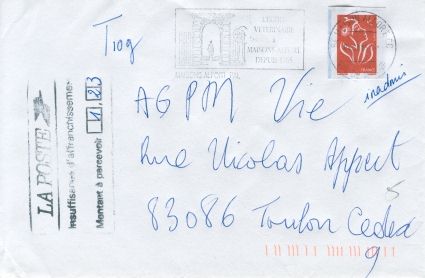 T 109
L'ECOLE
VETERINAIRE
A
MAISONS-ALFORT
DEPUIS 1765
MAISONS-ALFORT
FRANCE
LA POSTE
Insuffisance d'affranchissement
Montant à percevoir 1,23
AGPM Vie
Rue Nicolas Appert
83086 Toulon Cedex
9
5